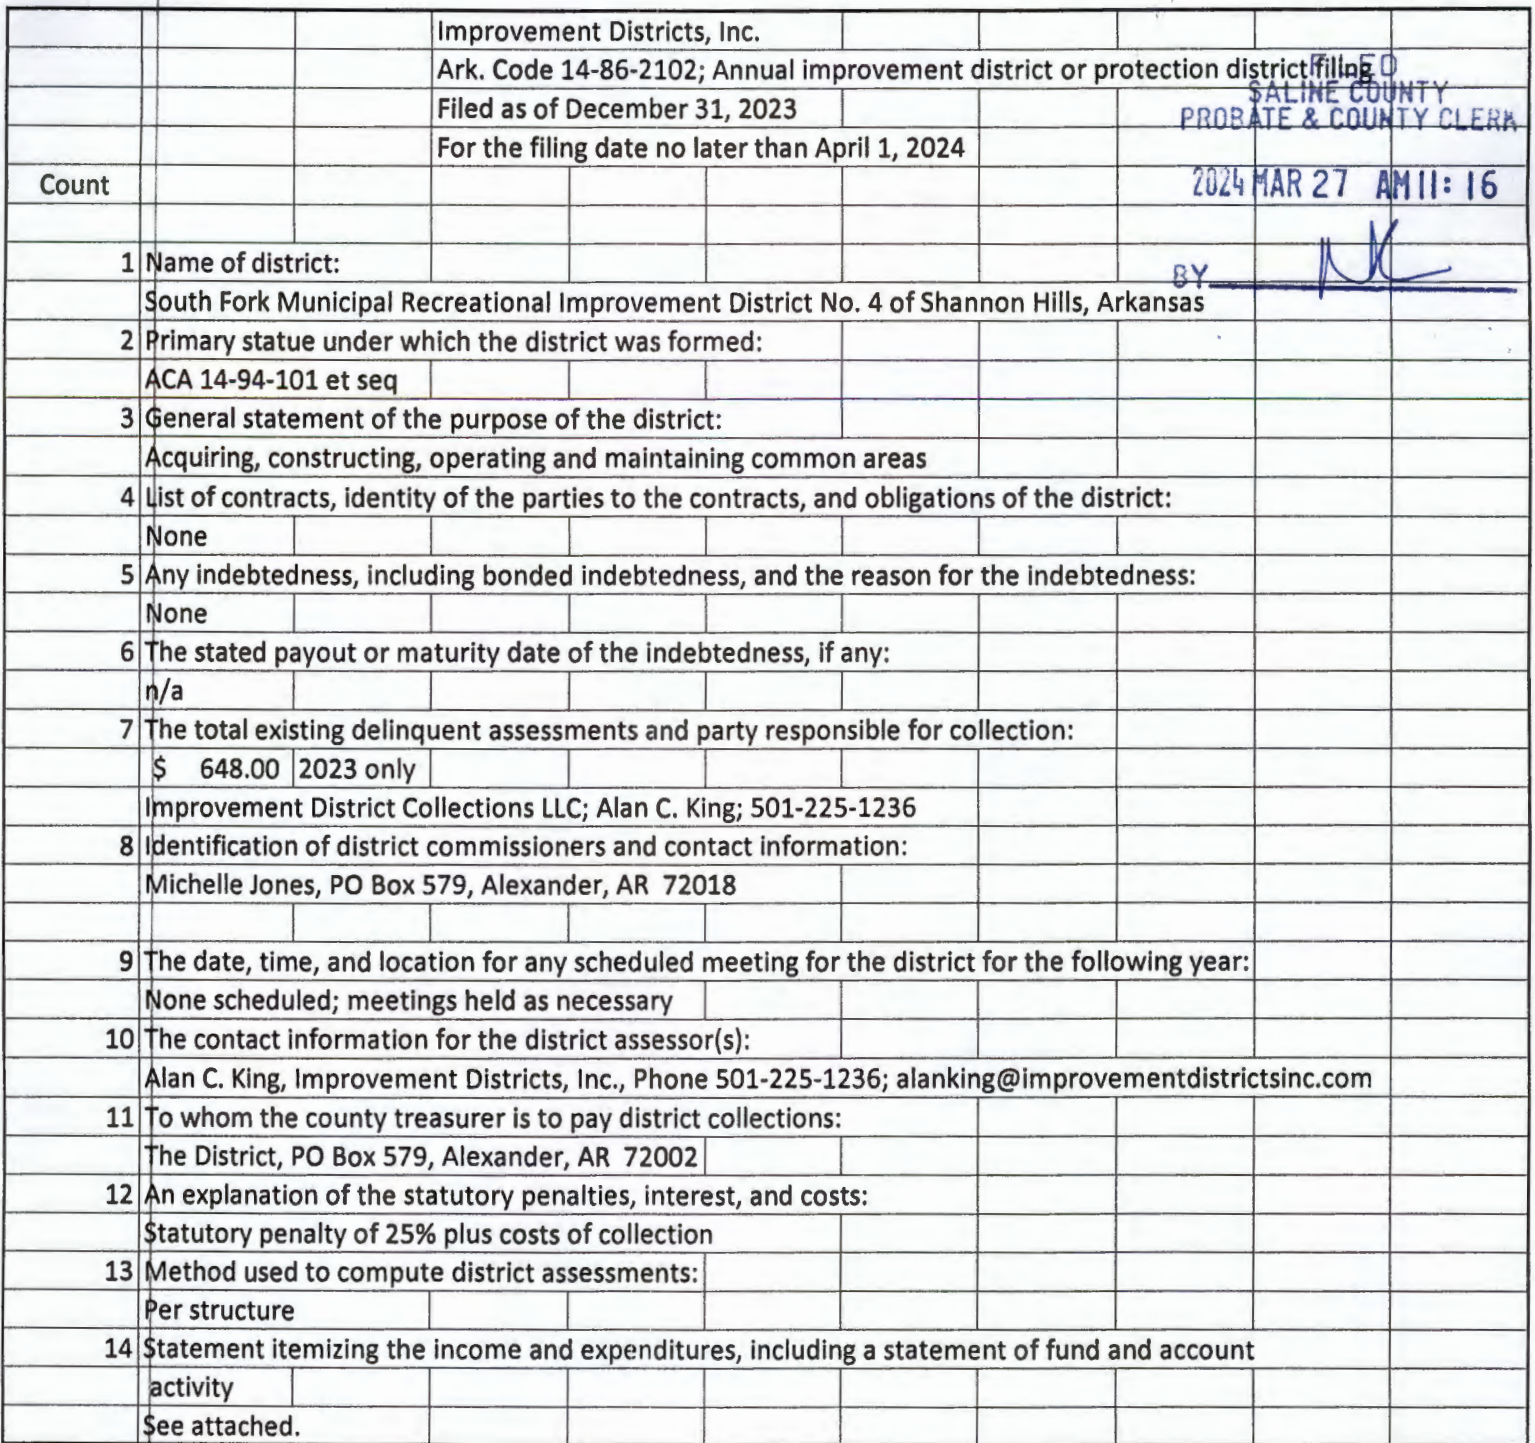 Improvement Districts, Inc.
Ark. Code 14-86-2102; Annual improvement district or protection district filing
Filed as of December 31, 2023
For the filing date no later than April 1, 2024
SALINE COUNTY
PROBATE & COUNTY CLERK
2024 MAR 27 AM 11: 16
BY
Count
1 Name of district:
South Fork Municipal Recreational Improvement District No. 4 of Shannon Hills, Arkansas
2 Primary statue under which the district was formed:
ACA 14-94-101 et seq
3 General statement of the purpose of the district:
Acquiring, constructing, operating and maintaining common areas
4 List of contracts, identity of the parties to the contracts, and obligations of the district:
None
5 Any indebtedness, including bonded indebtedness, and the reason for the indebtedness:
None
6 The stated payout or maturity date of the indebtedness, if any:
n/a
7 The total existing delinquent assessments and party responsible for collection:
$ 648.00 2023 only
Improvement District Collections LLC; Alan C. King; 501-225-1236
8 Identification of district commissioners and contact information:
Michelle Jones, PO Box 579, Alexander, AR 72018
9 The date, time, and location for any scheduled meeting for the district for the following year:
None scheduled; meetings held as necessary
10 The contact information for the district assessor(s):
Alan C. King, Improvement Districts, Inc., Phone 501-225-1236; alanking@improvementdistrictsinc.com
11 To whom the county treasurer is to pay district collections:
The District, PO Box 579, Alexander, AR 72002
12 An explanation of the statutory penalties, interest, and costs:
Statutory penalty of 25% plus costs of collection
13 Method used to compute district assessments:
Per structure
14 Statement itemizing the income and expenditures, including a statement of fund and account
activity
See attached.